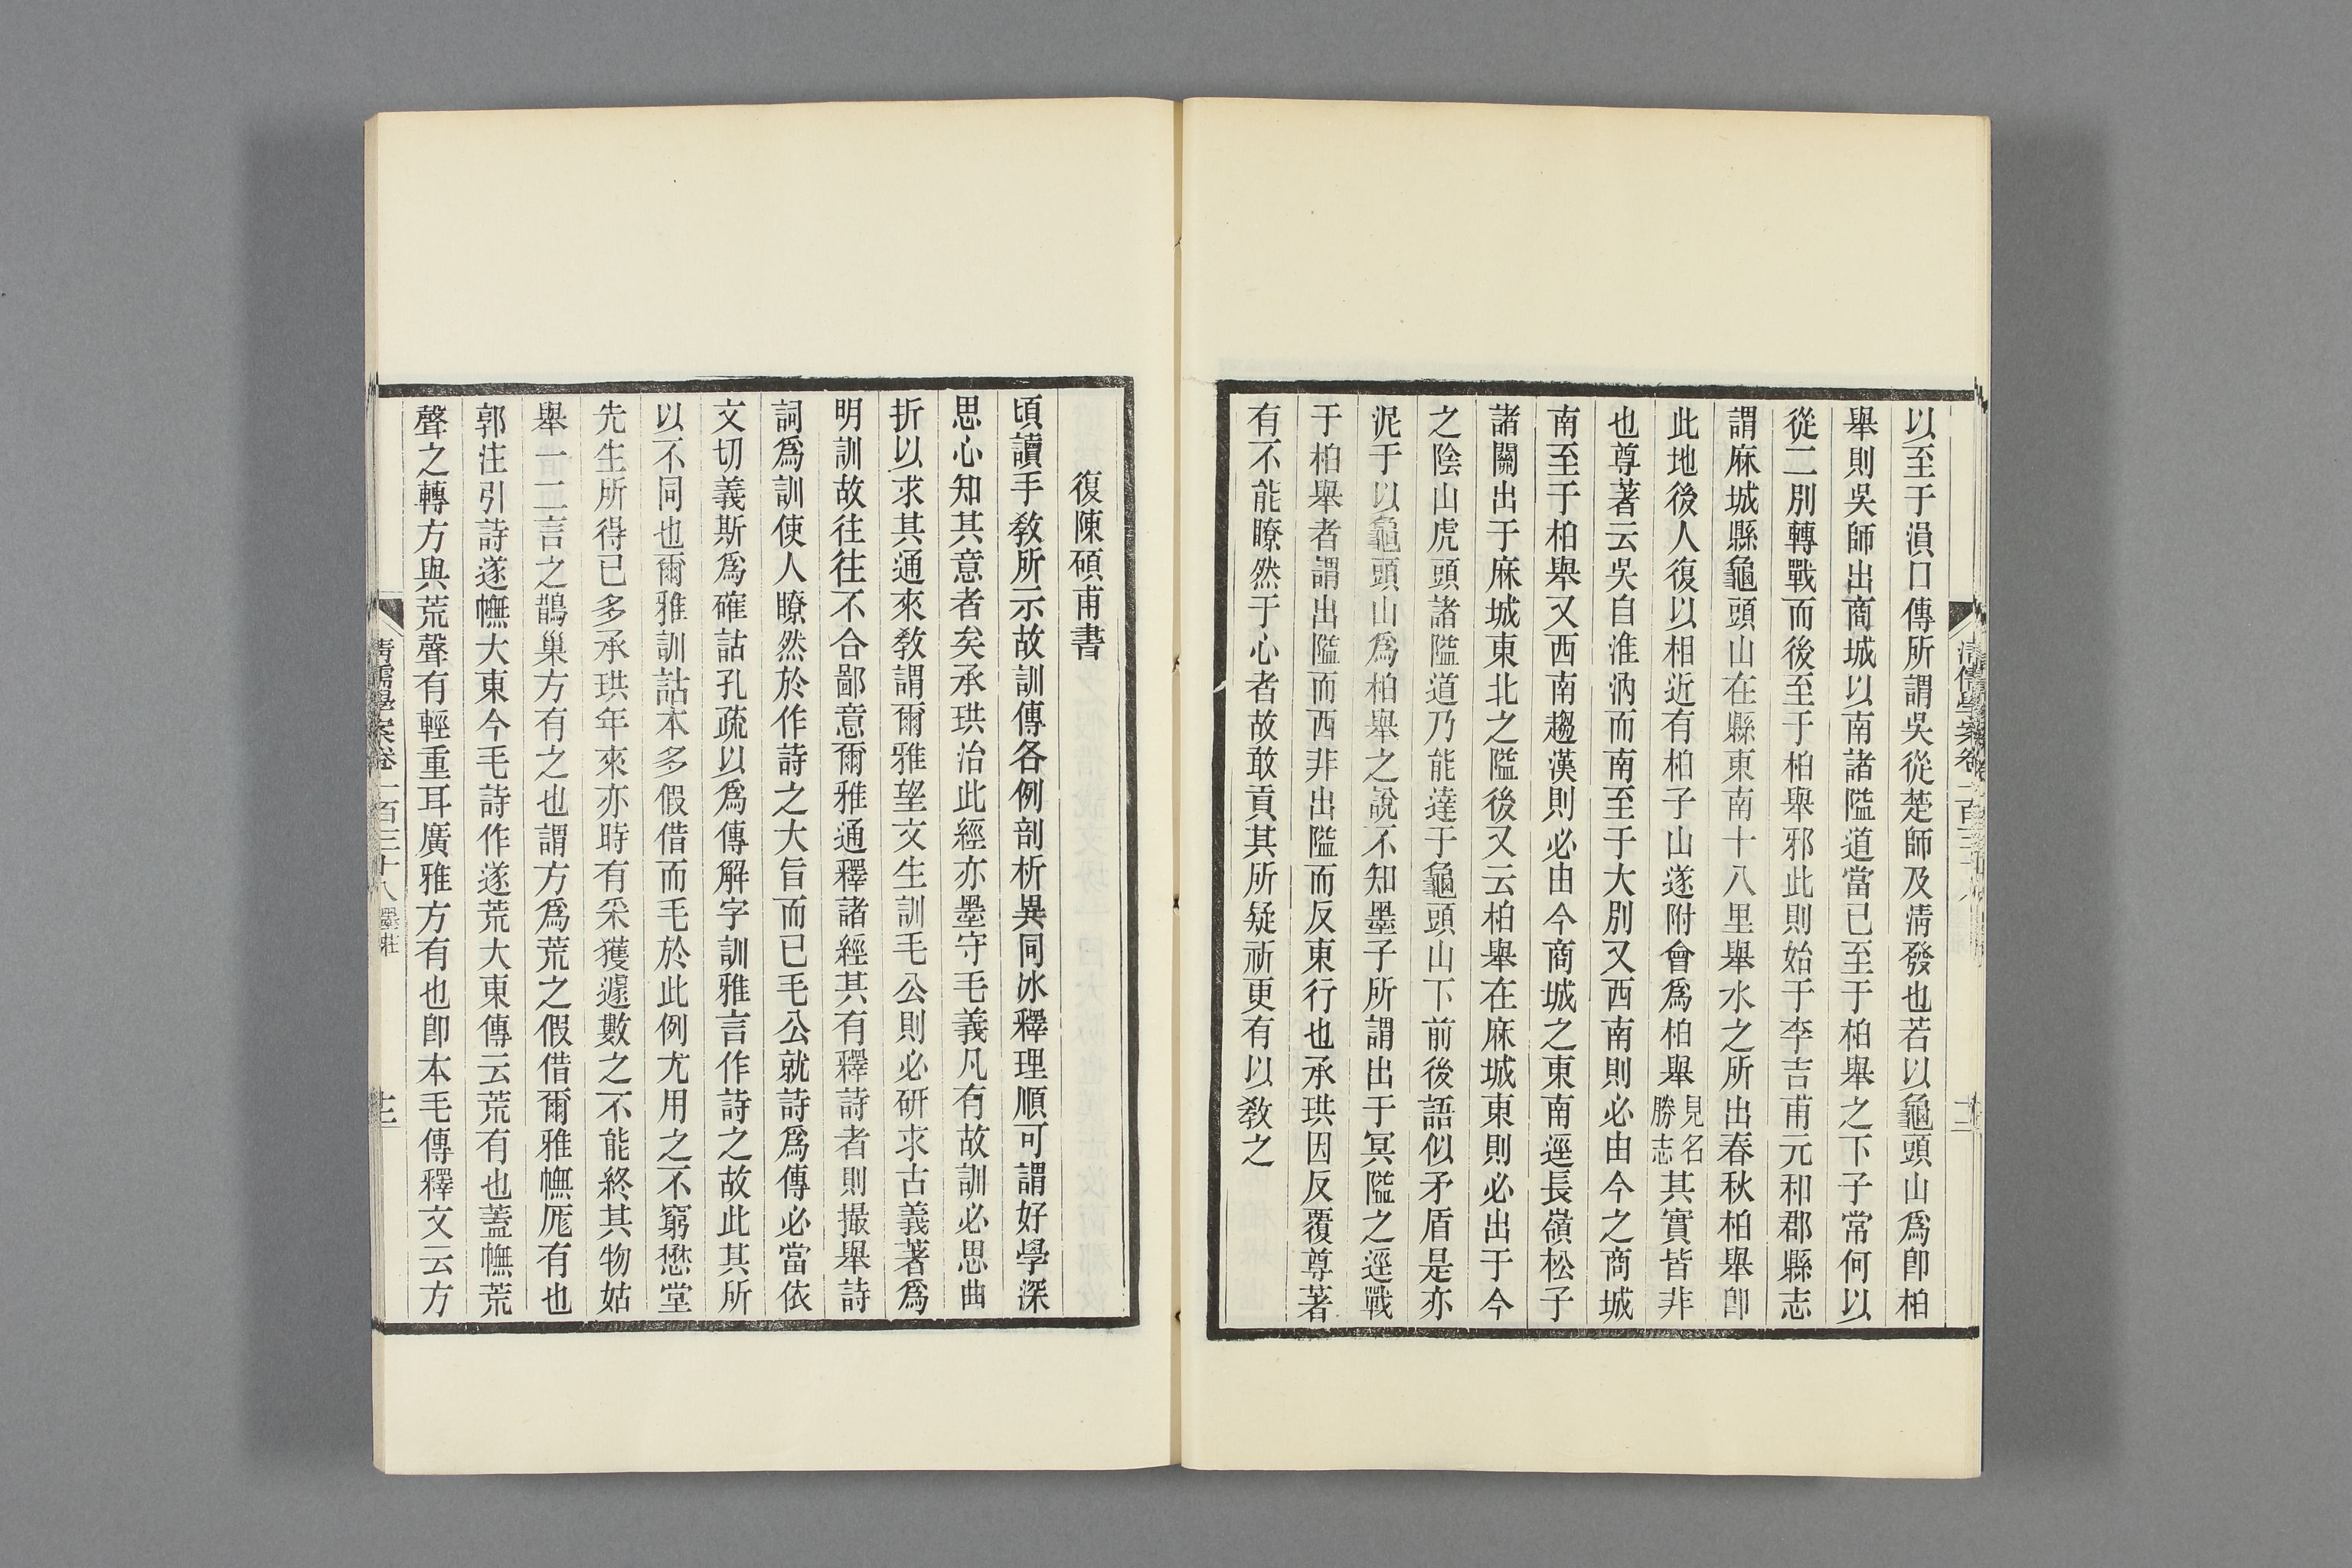 以至于溳口傳所謂吳從楚師及淸發也若以龜頭山爲卽柏
舉則吳師出商城以南諸隘道當已至于柏舉之下子常何以
從二別轉戰而後至于柏舉邪此則始于李吉甫元和郡縣志
謂麻城縣龜頭山在縣東南十八里舉水之所出春秋柏舉卽
此地後人復以相近有柏子山遂附會爲柏舉見名勝志其實皆非
也尊著云吳自淮汭而南至于大別又西南則必由今之商城
南至于柏舉又西南趨漢則必由今商城之東南逕長嶺松子
諸關出于麻城東北之隘後又云柏舉在麻城東則必出于今
之陰山虎頭諸隘道乃能達于龜頭山下前後語似矛盾是亦
泥于以龜頭山爲柏舉之說不知墨子所謂出于冥隘之逕戰
于柏舉者謂出隘而西非出隘而反東行也承珙因反覆尊著
有不能瞭然于心者故敢貢其所疑祈更有以敎之
復陳碩甫書
頃讀手敎所示故訓傳各例剖析異同冰釋理順可謂好學深
思心知其意者矣承珙治此經亦墨守毛義凡有故訓必思曲
折以求其通來敎謂爾雅望文生訓毛公則必硏求古義著爲
明訓故往往不合鄙意爾雅通釋諸經其有釋詩者則撮舉詩
詞爲訓使人瞭然於作詩之大旨而已毛公就詩爲傳必當依
文切義斯爲確詁孔疏以爲傳解字訓雅言作詩之故此其所
以不同也爾雅訓詁本多假借而毛於此例尤用之不窮懋堂
先生所得已多承珙年來亦時有采獲遽數之不能終其物姑
舉一二言之鵲巢方有之也謂方爲荒之假借爾雅幠厖有也
郭注引詩遂幠大東今毛詩作遂荒大東傳云荒有也蓋幠荒
聲之轉方與荒聲有輕重耳廣雅方有也卽本毛傳釋文云方
淸儒學案卷一百三十八 墨莊